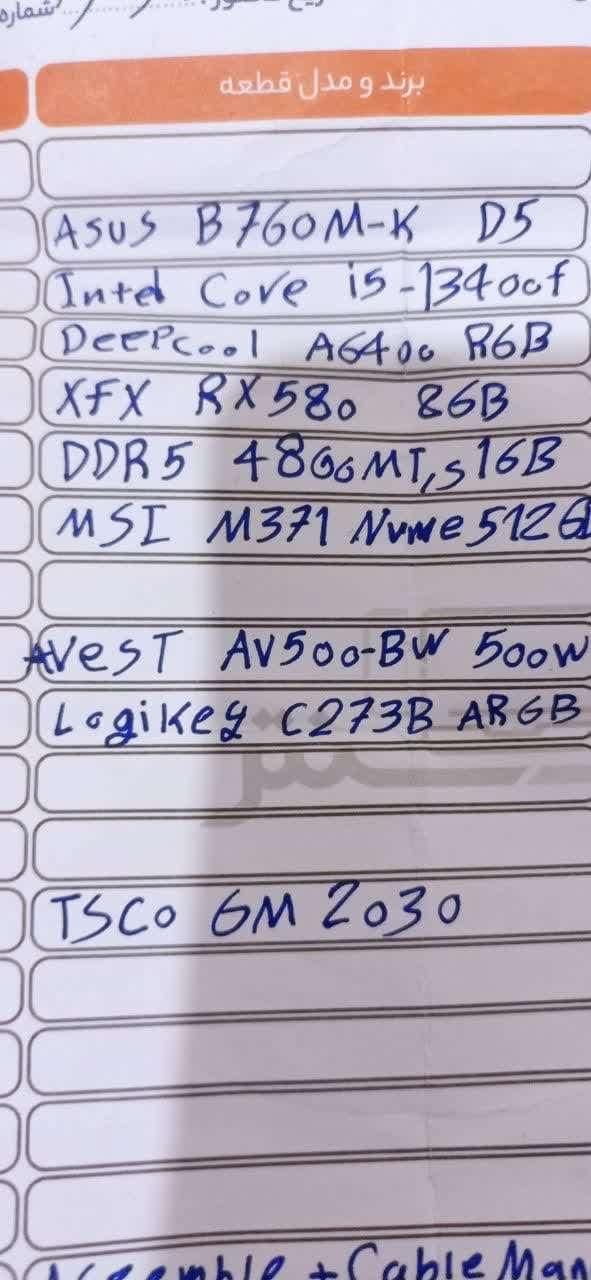 شماره
برند و مدل قطعه
ASUS B760M-K D5
Intel Core i5-13400f
DeepCool AG400 RGB
XFX RX580 8GB
DDR5 4800MT,s 16B
MSI M371 Nvme 512G
AVEST AV500-BW 500W
LogiKey C273B ARGB
TSCO GM 2030
+ Cable Man